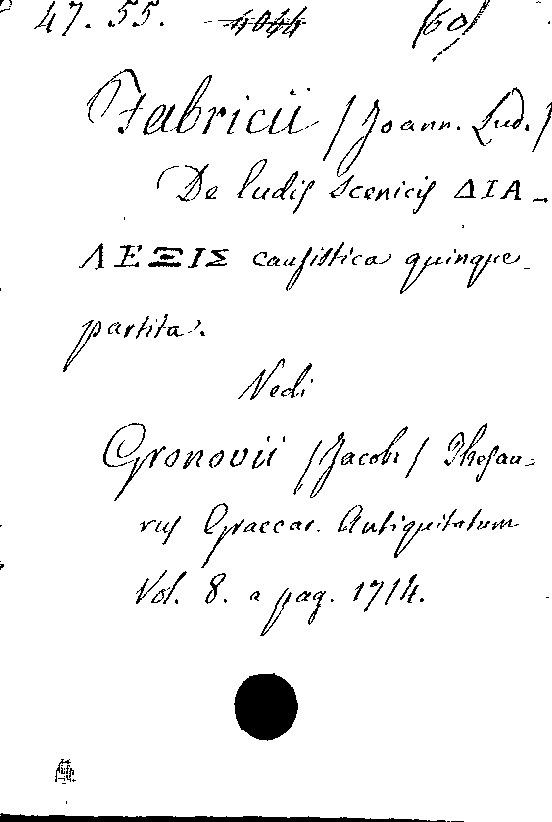 47. 55. 4044 (60)
Fabricii /Joann. Lud./
De ludis scenicis ΔΙΑ-
ΛΕΞΙΣ causistica quinque-
partita.
Vedi
Gronovii /Jacobi/ Thesau-
rus Graecar. Antiquitatum
Vol. 8. a pag. 1714.